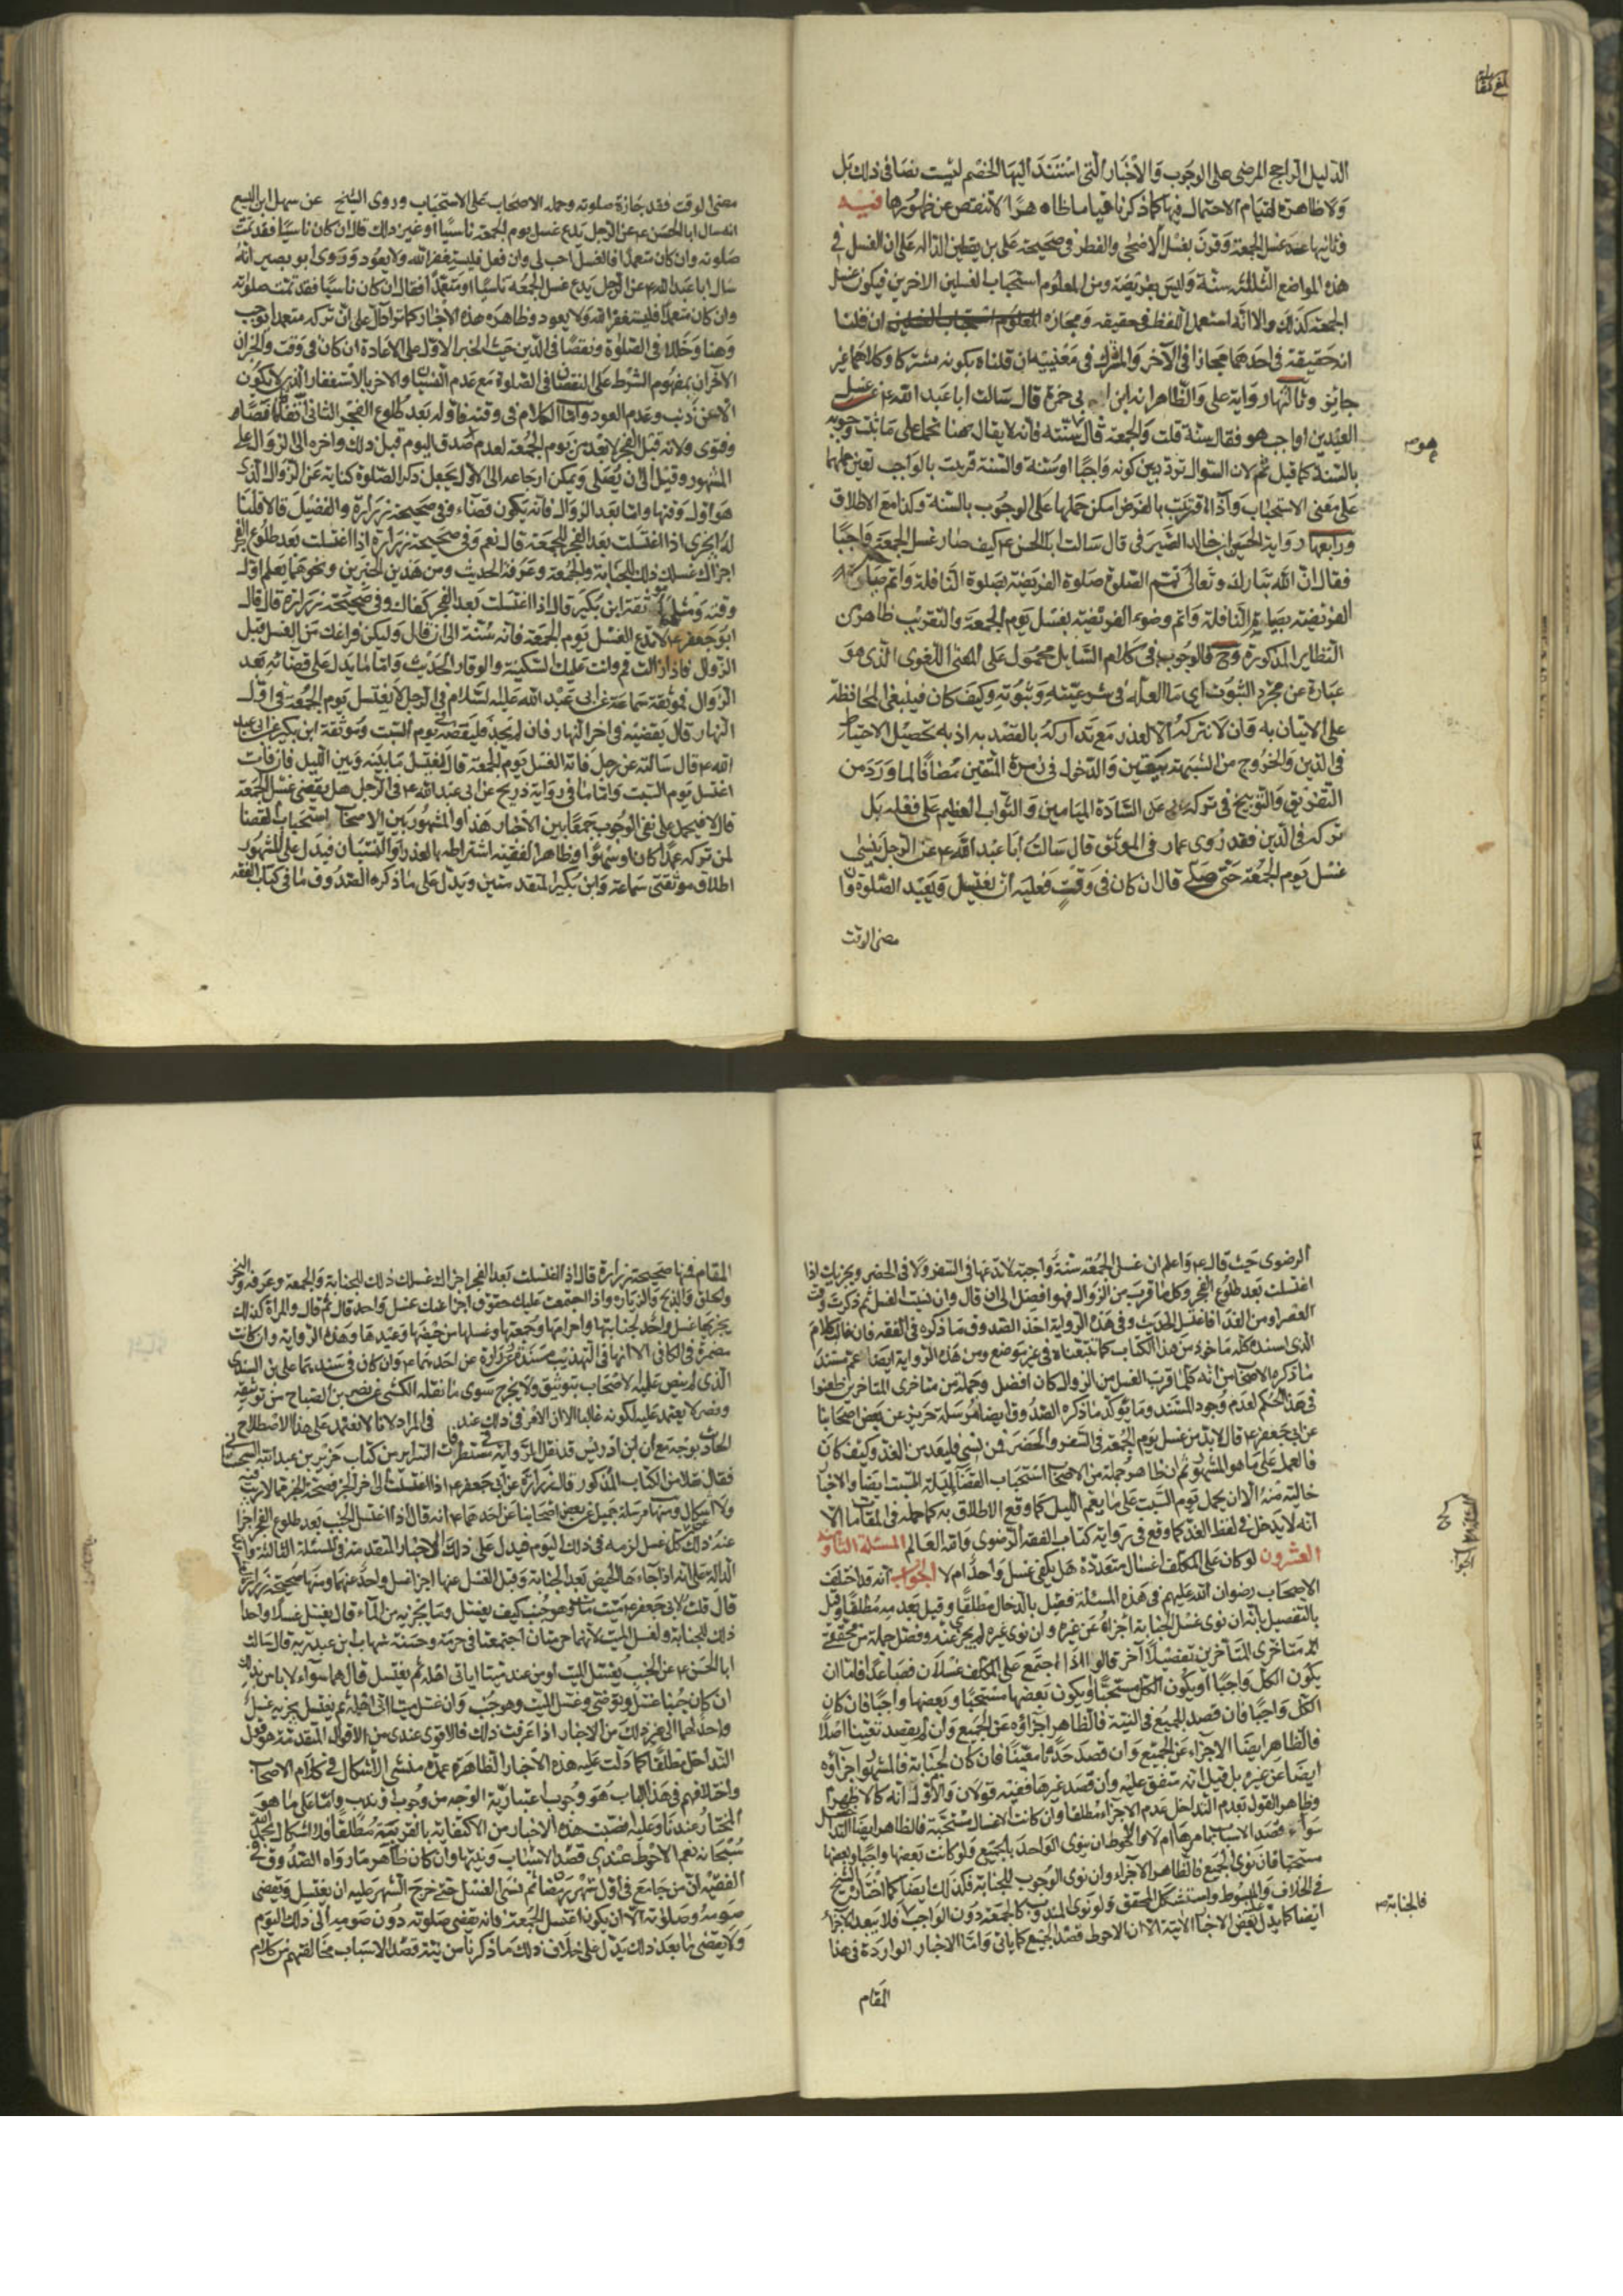 بلغ مقابلة
الدليل الراجح المرضى على الوجوب والاخبار التى استند اليها الخصم ليست نصا فى ذلك بل
ولا ظاهرة لقيام الاحتمال فيها كما ذكرنا قياما ظاهرا لا تنقص عن ظهورها فيه
وثانيها عد غسل الجمعة وقرن بغسل الاضحى والفطر فى صحيحة على بن يقطين الدالة على ان الغسل فى
هذه المواضع الثلثة سنة وليس بفريضة ومن المعلوم استحباب الغسلين الاخرين فيكون غسل
الجمعة كذلك والا انه استعمل اللفظ فى حقيقته ومجازه ان قلنا
انه حقيقة فى احدهما مجازا فى الآخر والمشترك فى معنييه ان قلناه بكونه مشتركا وكلاهما غير
جائز وثالثها رواية على والظاهر انه ابن ابى حمزة قال سالت ابا عبد الله ع عن غسل
العيدين اواجب هو فقال سنة قلت والجمعة قال سنة فانه لا يقال ههنا نحمل على ما ثبت وجوبه
هو صح
بالسنة كما قيل ثم لان السؤال تردد بين كونه واجبا او سنة والسنة قرنت بالواجب تعين حملها
على معنى الاستحباب واذا قرنت بالفرض امكن حملها على الوجوب بالسنة وكذا مع الاطلاق
ورابعها رواية الحسين بن خالد الصيرفى قال سالت ابا الحسن ع كيف صار غسل الجمعة واجبا
فقال ان الله تبارك وتعالى تمم الصلوة صلوة الفريضة بصلوة النافلة واتم صيام
الفريضة بصيام النافلة واتم وضوء الفريضة بغسل يوم الجمعة والتقريب ظاهر من
النظاير المذكورة وح فالوجوب فى كلام السايل محمول على المعنى اللغوى الذى هو
عبارة عن مجرد الثبوت اى ما العلة فى شرعيته وثبوته وكيف كان فينبغى المحافظة
على الاتيان به وان لا نتركه الا لعذر مع تداركه بالقصد به اذ به تحصيل الاحتياط
فى الدين والخروج من الشبهة بيقين والدخول فى زمرة المتقين مضافا لما ورد من
التقريع والتوبيخ فى تركه عن السادة الميامين والثواب العظيم على فعله بل
تركه فى الدين فقد روى عمار فى الموثق قال سالت ابا عبد الله ع عن الرجل ينسى
غسل يوم الجمعة حتى صلى قال ان كان فى وقت فعليه ان يغتسل ويعيد الصلوة وان
مضى الوقت
مضى الوقت فقد جازت صلوته وحمله الاصحاب على الاستحباب وروى الشيخ عن سهل ابن اليسع
انه سال ابا الحسن ع عن الرجل يدع غسل يوم الجمعة ناسيا او غير ذلك قال ان كان ناسيا فقد تمت
صلوته وان كان متعمدا فالغسل احب الى وان فعل فليستغفر الله ولا يعود وروى ابو بصير انه
سال ابا عبد الله ع عن الرجل يدع غسل الجمعة ناسيا او متعمدا فقال ان كان ناسيا فقد تمت صلوته
وان كان متعمدا فليستغفر الله ولا يعود وظاهر هذه الاخبار كما ترى دال على ان تركه متعمدا يوجب
وهنا وخللا فى الصلوة ونقصا فى الدين حيث الخبر الاول على الاعادة ان كان فى وقت والخبران
الآخران بمفهوم الشرط على النقصان فى الصلوة مع عدم النسيان والاخر بالاستغفار الذى لا يكون
الا عن ذنب وعدم العود واما الكلام فى وقته فاوله بعد طلوع الفجر الثانى اتفاقا نصا
وفتوى ولانه قبل الفجر لا يعد من يوم الجمعة لعدم صدق اليوم قبل ذلك واخره الى الزوال على
المشهور وقيل الى ان يصلى ويمكن ارجاعه الى الاول بجعل ذكر الصلوة كناية عن الزوال الذى
هو اول وقتها واما بعد الزوال فانه يكون قضاء وفى صحيحة زرارة والفضيل قالا قلنا
له ايجزى اذا اغتسلت بعد الفجر للجمعة قال نعم وفى صحيحة زرارة اذا اغتسلت بعد طلوع الفجر
اجزاك غسلك ذلك للجنابة والجمعة وعرفة الحديث ومن هذين الخبرين ونحوهما يعلم اول
وقته ومثلهما موثقة ابن بكير قال اذا اغتسلت بعد الفجر كفاك وفى صحيحة زرارة قال قال
ابو جعفر ع لا تدع الغسل يوم الجمعة فانه سنة الى ان قال وليكن فراغك من الغسل قبل
الزوال فاذا زالت قم وانت عليك السكينة والوقار الحديث واما ما يدل على قضائه بعد
الزوال فموثقة سماعة عن ابى عبد الله عليه السلام فى الرجل لا يغتسل يوم الجمعة فى اول
النهار قال يقضيه فى اخر النهار فان لم يجد فليقضه يوم السبت وموثقة ابن بكير عن ابى عبد
الله ع قال سالته عن رجل فاته الغسل يوم الجمعة قال يغتسل ما بينه وبين الليل فان فات
اغتسل يوم السبت واما ما فى رواية ذريح عن ابى عبد الله ع فى الرجل هل يقضى غسل الجمعة
قال لا فيحمل على نفى الوجوب جمعا بين الاخبار هذا والمشهور بين الاصحاب استحباب القضاء
لمن تركه عمدا كان او سهوا وظاهر الفقيه اشتراطه بالعذر او النسيان فيدل على المشهور
اطلاق موثقتى سماعة وابن بكير المتقدمتين ويدل على ما ذكره الصدوق ما فى كتاب الفقه
الرضوى حيث قال ع واعلم ان غسل الجمعة سنة واجبة لا تدعها فى السفر ولا فى الحضر ويجزيك اذا
اغتسلت بعد طلوع الفجر وكل ما قرب من الزوال فهو افضل الى ان قال وان نسيت الغسل ثم ذكرت وقت
العصر او من الغد فاغتسل الحديث وفى هذه الرواية اخذ الصدوق ما ذكره فى الفقيه فان غالب كلامه
الذى اسنده كله ماخوذ من هذا الكتاب كما تتبعناه فى غير موضع ومن هذه الرواية ايضا علم مستند
ما ذكره الاصحاب من انه كلما قرب الغسل من الزوال كان افضل وجملة من متاخرى المتاخرين طعنوا
فى هذا الحكم لعدم وجود المستند ومما يؤكد ما ذكره الصدوق ايضا مرسلة حريز عن بعض اصحابنا
عن ابى جعفر ع قال لا بد من غسل يوم الجمعة فى السفر والحضر فمن نسى فليعد من الغد وكيف كان
فالعمل على ما هو المشهور ثم ان ظاهر جملة من الاصحاب استحباب القضاء ليلة السبت ايضا والاخبار
خالية منه الا ان يحمل يوم السبت على ما يعم الليل كما وقع الاطلاق به كما حمله فى المقام الا
انه لا يدخل فى لفظ الغد كما وقع فى رواية كتاب الفقه الرضوى والله العالم المسئلة الثانية و
العشرون لو كان على المكلف اغسال متعددة هل يكفى غسل واحد ام لا الجواب انه قد اختلف
الاصحاب رضوان الله عليهم فى هذه المسئلة فقيل بالتداخل مطلقا وقيل بعدمه مطلقا وقيل
بالتفصيل بانه ان نوى غسل الجنابة اجزاه عن غيره وان نوى غيره لم يجز عنه وفصل جملة من محققى
متاخرى المتاخرين تفصيلا آخر قالوا اذا اجتمع على المكلف غسلان فصاعدا فاما ان
يكون الكل واجبا او يكون الكل مستحبا او يكون بعضها مستحبا وبعضها واجبا فان كان
الكل واجبا فان قصد الجميع فى النية فالظاهر اجزاؤه عن الجميع وان لم يقصد تعيينا اصلا
فالظاهر ايضا الاجزاء عن الجميع وان قصد حدثا معينا فان كان الجنابة فالمشهور اجزاؤه
ايضا عن غيره بل قيل انه متفق عليه وان قصد غيرها ففيه قولان والاول انه كالاظهر
وظاهر القول بعدم التداخل عدم الاجزاء مطلقا وان كانت الاغسال مستحبة فالظاهر ايضا التداخل
سواء قصد الاسباب باسرها ام لا والاحوط ان ينوى الواحد بالجميع ولو كانت بعضها واجبا وبعضها
مستحبا فان نوى الجميع فالظاهر الاجزاء وان نوى الوجوب للجنابة فكذلك ايضا كما اختاره الشيخ
فى الخلاف والمبسوط واستشكل المحقق ولو نوى المندوب كالجمعة دون الواجب فلا يبعد الاجزاء
فالجنابة صح
ايضا كما يدل بعض الاخبار الاتية الا ان الاحوط قصد الجميع كما ياتى واما الاخبار الواردة فى هذا
المقام
المقام فمنها صحيحة زرارة قال اذا اغتسلت بعد الفجر اجزاك غسلك ذلك للجنابة والجمعة وعرفة والنحر
والحلق والذبح والزيارة واذا اجتمعت عليك حقوق اجزاها عنك غسل واحد قال ثم قال والمراة كذلك
يجزيها غسل واحد لجنابتها واحرامها وجمعتها وغسلها من حيضها وعيدها وهذه الرواية وان كانت
مضمرة فى الكافى الا انها فى التهذيب مسندة عن زرارة عن احدهما ع وان كان فى سندها على بن السندى
الذى لم ينص عليه الاصحاب بتوثيق ولا بجرح سوى ما نقله الكشى عن نصر بن الصباح من توثيقه
ونصر لا يعتمد عليه لكونه غاليا الا ان الامر فى ذلك عندى فى المراد لانا لا نعتمد على هذا الاصطلاح
الحادث بوجه مع ان ابن ادريس قد نقل الرواية فى مستطرفات السرائر من كتاب حريز بن عبد الله السجستانى
فقال نقلا من الكتاب المذكور قال زرارة عن ابى جعفر ع اذا اغتسلت الى اخر الخبر فصحة الخبر مما لا ريب فيه
ولا اشكال ومنها مرسلة جميل عن بعض اصحابنا عن احدهما ع انه قال اذا اغتسل الجنب بعد طلوع الفجر اجزا
عنه ذلك كل غسل لزمه فى ذلك اليوم فيدل على ذلك الاخبار المتقدمة فى المسئلة الثالثة
الدالة على انه اذا جاءها الحيض بعد الجنابة وقبل الغسل عنها اجزا غسل واحد عنهما ومنها صحيحة زرارة
قال قلت لابى جعفر ع ميت مات وهو جنب كيف يغسل وما يجزيه من الماء قال يغسل غسلا واحدا
ذلك للجنابة ولغسل الميت لانهما حرمتان اجتمعتا فى حرمة وحسنة شهاب بن عبد ربه قال سالت
ابا الحسن ع عن الجنب يغسل الميت او من غسل ميتا اياتى اهله ثم يغتسل قال هما سواء لا باس بذلك
ان كان جنبا غسل يديه وتوضئ وغسل الميت وهو جنب وان غسل ميتا اتى اهله ثم يغتسل يجزيه غسل
واحد لهما الى غير ذلك من الاخبار اذا عرفت ذلك فالاقوى عندى من الاقوال المتقدمة هو قول
التداخل مطلقا كما دلت عليه هذه الاخبار الظاهرة عمدة منشى الاشكال فى كلام الاصحاب
واختلافهم فى هذا الباب هو وجوب اعتبار نية الوجه من وجوب او ندب واما على ما هو
المختار عندنا وعليه نصت هذه الاخبار من الاكتفاء به بالقربة مطلقا فلا اشكال بحمد الله
سبحانه نعم الاحوط عندى قصد الاسباب ونيتها وان كان ظاهر ما رواه الصدوق فى
الفقيه ان من جامع فى اول شهر رمضان ثم نسى الغسل حتى خرج الشهر عليه ان يغتسل ويقضى
صومه وصلوته الا ان يكون اغتسل للجمعة فانه يقضى صلوته دون صومه الى ذلك اليوم
ولا يقضى ما بعد ذلك يدل على خلاف ذلك ما ذكرنا من نية قصد الاسباب مخالفتهم من كلام